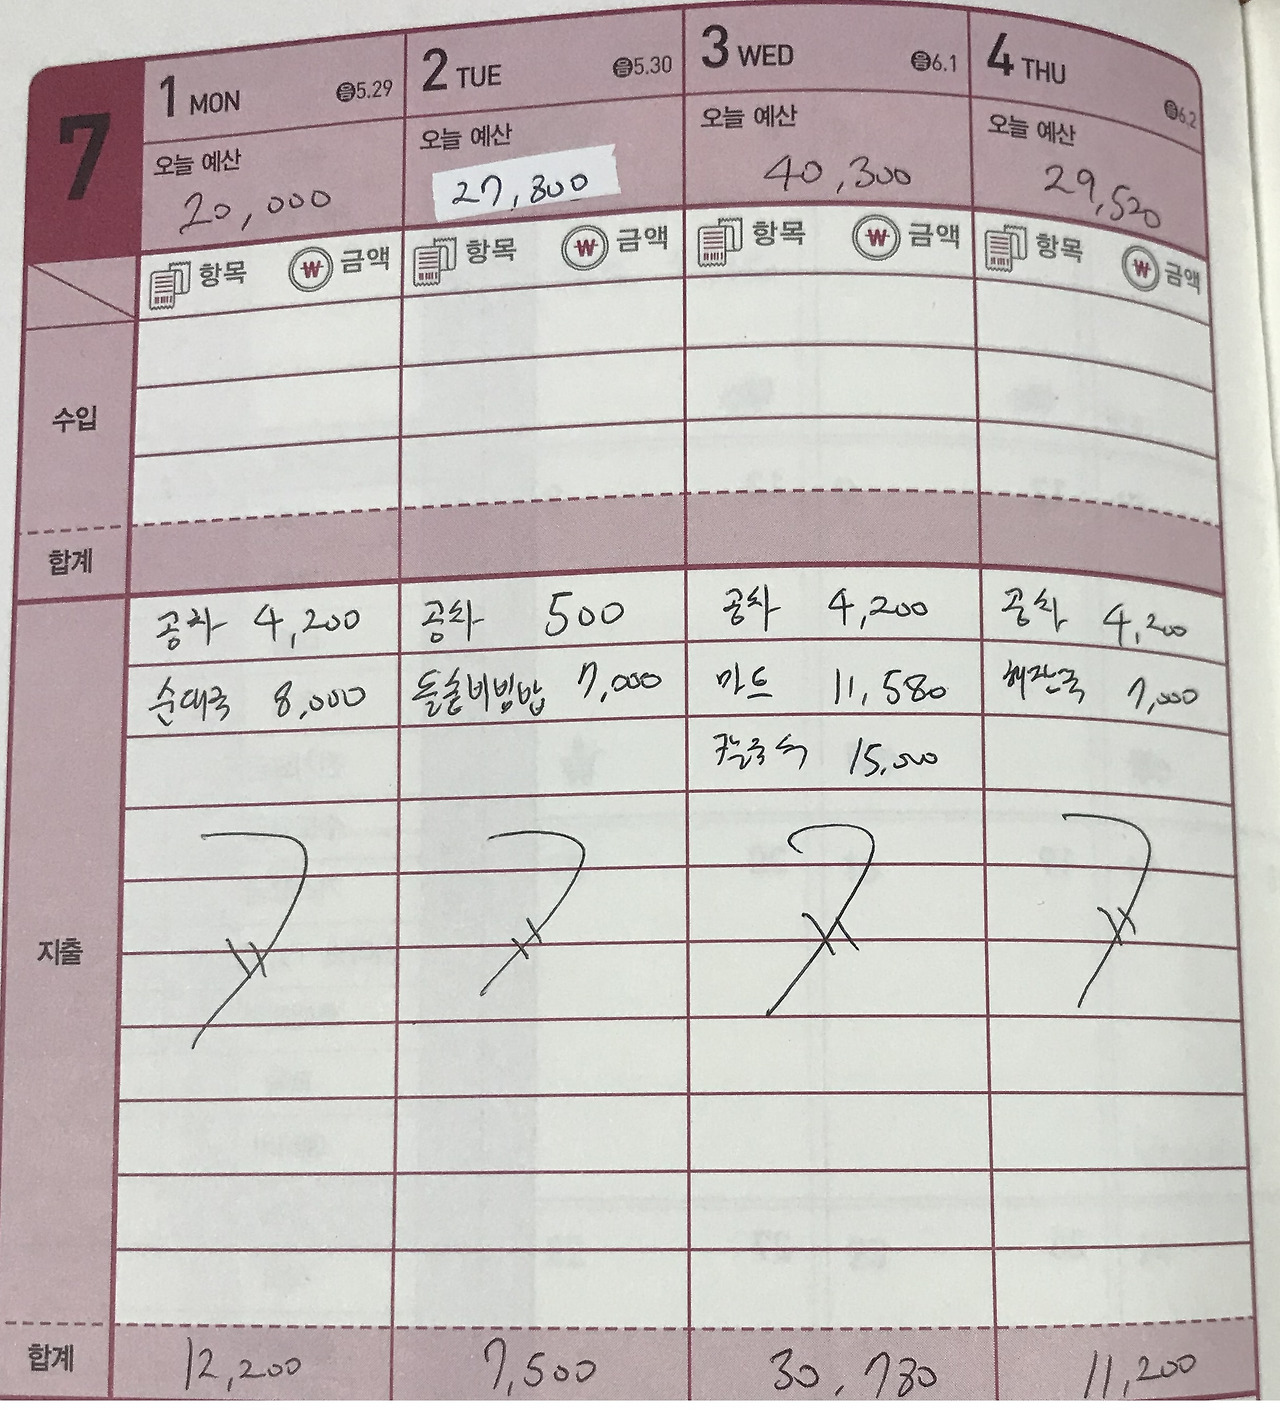 7
1 MON 음5.29
2 TUE 음5.30
3 WED 음6.1
4 THU 음6.2
오늘 예산 오늘 예산 오늘 예산 오늘 예산
20,000 27,800 40,300 29,520
항목 ₩ 금액 항목 ₩ 금액 항목 ₩ 금액 항목 ₩ 금액
수입
합계
공차 4,200 공차 500 공차 4,200 공차 4,200
순대국 8,000 돌솥비빔밥 7,000 마트 11,580 해장국 7,000
칼국수 15,000
지출
합계 12,200 7,500 30,780 11,200